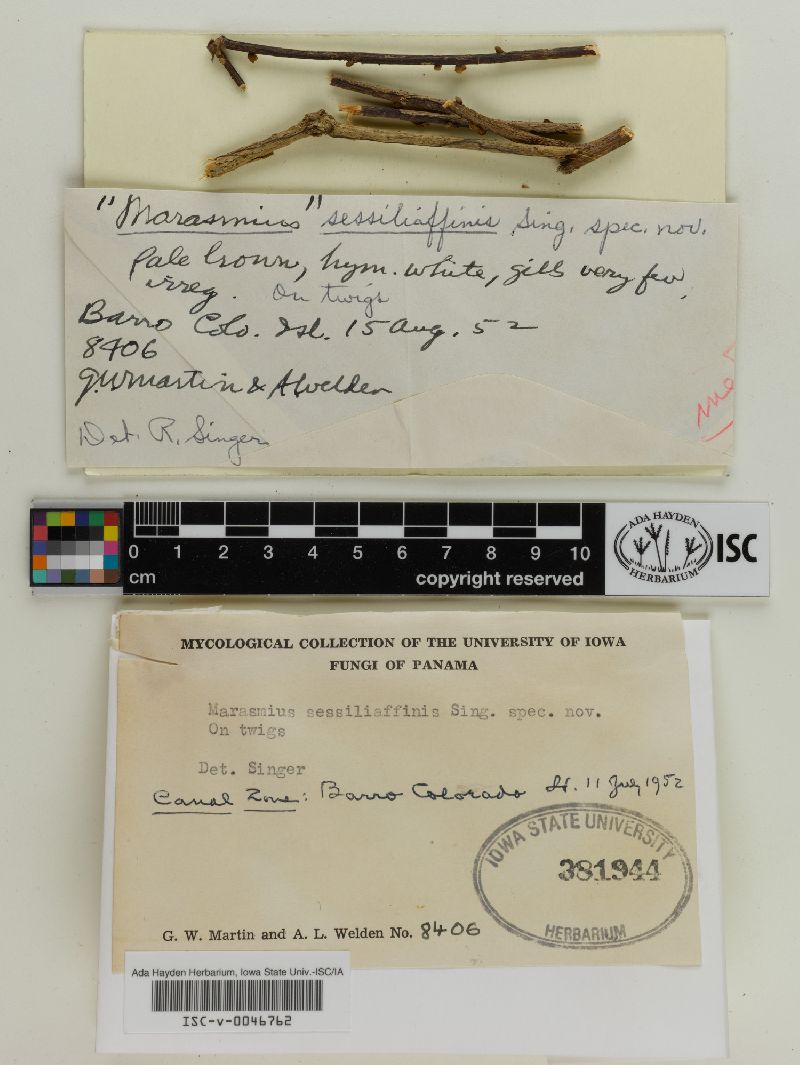 "Marasmius" sessiliaffinis Sing. spec. nov.
Pale brown, hym. white, gills very few,
irreg. On twigs
Barro Colo. Isl. 15 Aug. 52
8406
G.W. Martin & A. Welden
Det. R. Singer
0 1 2 3 4 5 6 7 8 9 10
cm
copyright reserved
ADA HAYDEN
HERBARIUM
ISC
MYCOLOGICAL COLLECTION OF THE UNIVERSITY OF IOWA
FUNGI OF PANAMA
Marasmius sessiliaffinis Sing. spec. nov.
On twigs
Det. Singer
Canal Zone: Barro Colorado 11 July 1952
IOWA STATE UNIVERSITY
381944
HERBARIUM
G. W. Martin and A. L. Welden No. 8406
Ada Hayden Herbarium, Iowa State Univ.-ISC/IA
ISC-v-0046762